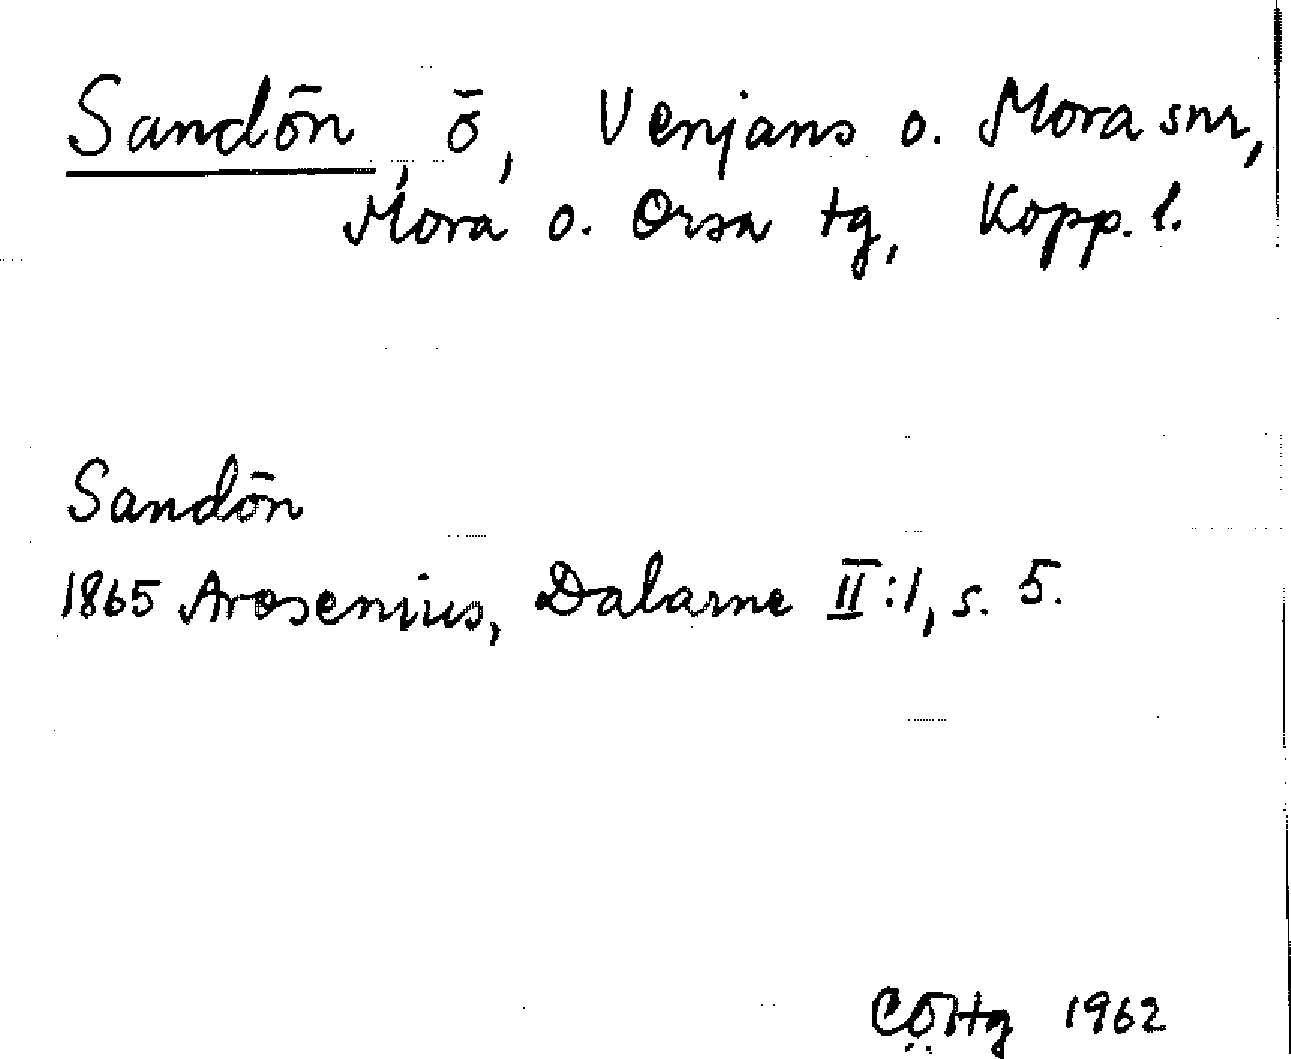 Sandön, ö, Venjans o. Mora snr,
Mora o. Orsa tg, Kopp. l.
Sandön
1865 Arosenius, Dalarne II:1, s. 5.
1962